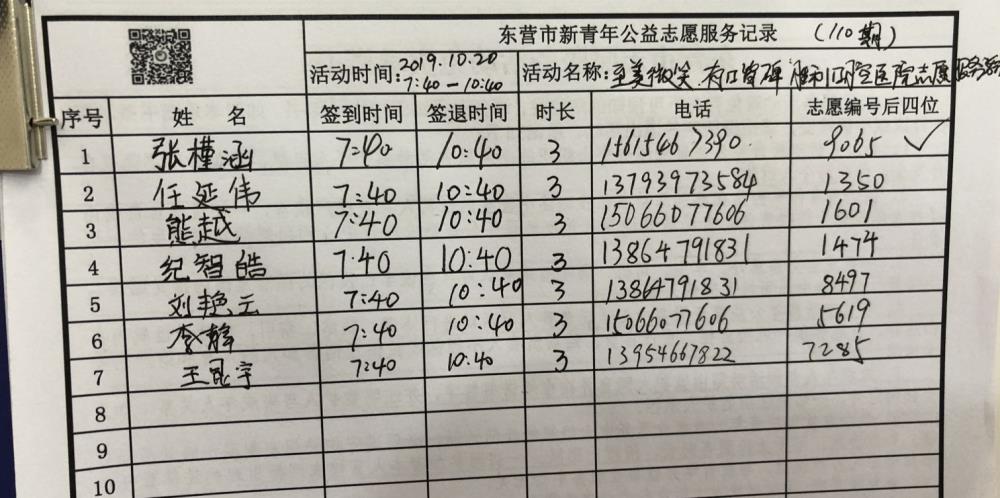 东营市新青年公益志愿服务记录 (110期)
活动时间: 2019.10.20 7:40—10:40 活动名称: 至美微笑 有口皆碑 胜利口腔医院志愿服务
序号 姓 名 签到时间 签退时间 时长 电话 志愿编号后四位
1 张槿涵 7:40 10:40 3 15615467390. 9065 ✓
2 任延伟 7:40 10:40 3 13793973584 1350
3 熊越 7:40 10:40 3 15066077606 1601
4 纪智皓 7:40 10:40 3 13864791831 1474
5 刘艳云 7:40 10:40 3 13864791831 8497
6 李静 7:40 10:40 3 15066077606 5619
7 王昆宇 7:40 10:40 3 13954667822 7285
8
9
10